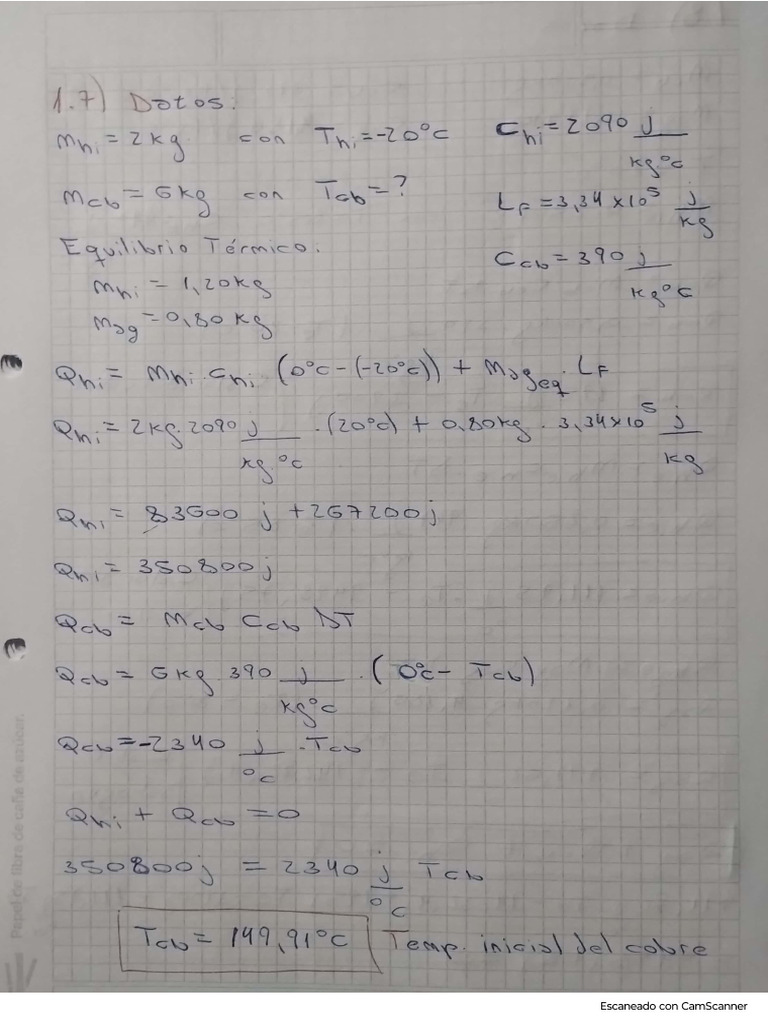 1.7) Datos:
mhi = 2kg con Thi = -20°c chi = 2090 j/kg°c
mcb = 6kg con Tcb = ? LF = 3,34 x10⁵ j/kg
Equilibrio Térmico. Ccb = 390 j/kg°c
mhi = 1,20kg
mag = 0,80 kg
Qhi = mhi . chi (0°c - (-20°c)) + mageq . LF
Qhi = 2kg. 2090 j/kg.°c . (20°c) + 0,80kg . 3,34x10⁵ j/kg
Qhi = 83600 j + 267200 j
Qhi = 350800 j
Qcb = mcb Ccb ΔT
Qcb = 6kg. 390 j/kg°c . (0°c - Tcb)
Qcb = -2340 j/°c . Tcb
Qhi + Qcb = 0
350800 j = 2340 j/°c Tcb
Tcb = 149,91°c Temp. inicial del cobre
Papel de fibra de caña de azúcar.
Escaneado con CamScanner